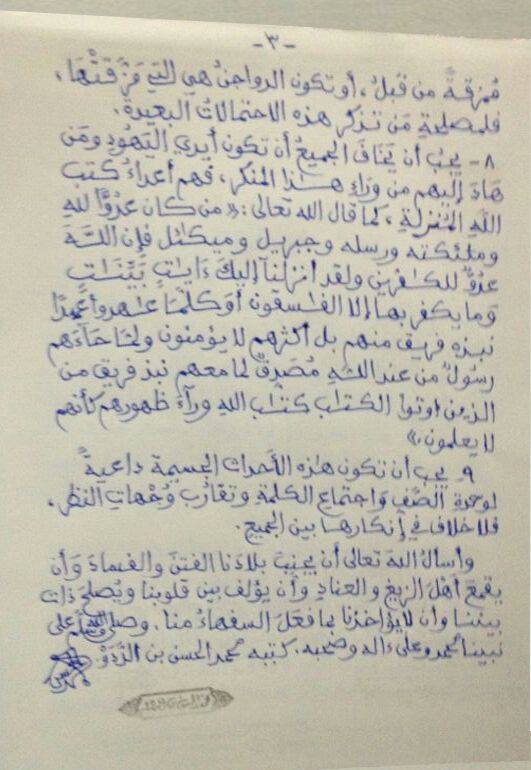 -٣-
مُمزقةً من قبلُ، أو تكون الرواجنُ هي التي مَزَّقَتْها،
فلمصلحةِ مَن تذكر هذه الاحتمالاتُ البعيدة.
٨- يجبُ أن يَخافَ الجميعُ أن تكون أيدي اليَهُودِ ومَن
هَادَ إليهم من وراءِ هـذا المنكر، فهم أعداءُ كتب
اللهِ المُنَزلةِ، كما قال الله تعالى: «من كان عدُوًّا للهِ
وملٰئكته ورسله وجبريل وميكٰئل فإن اللـه
عدُوٌ للكٰفرين ولقد أنزلنآ إليك ءَايٰتٍ بَيِّنٰتٍ
وَما يكفر بها إلا الفٰسقون أوَكلّمَا عٰهدوا عهدًا
نبذه فريق منهم بل أكثرهم لا يؤمنون ولمّا جآءهم
رسولٌ من عند اللـهِ مُصَدِّقٌ لما معهم نبذ فريق من
الذين أوتوا الكتٰب كتٰب اللهِ ورآءَ ظهورهم كأنهم
لا يعلمون.»
٩ يجب أن تكون هٰذه الأحداث الجسيمة داعيةً
لوحدة الصَّفِ وَاجتماع الكلمةِ وتقارُب وُجْهاتِ النظر،
فلا خلاف في إنكارهـا بين الجميع.
وأسألُ اللهَ تعالى أن يجنِّبَ بلادَنا الفتنَ والفسادَ وَأن
يقمعَ أهلَ الزيغ والعنادِ وأن يؤلف بين قلوبنا ويُصلحَ ذات
بيننا وأن لا يؤاخذنا بما فعَلَ السفهاءُ منا، وصلى الله وسلم على
نبينا محمدٍ وعلى ءاله وصحبه. كتبه محمد الحسن بن الدَّدَوْ.